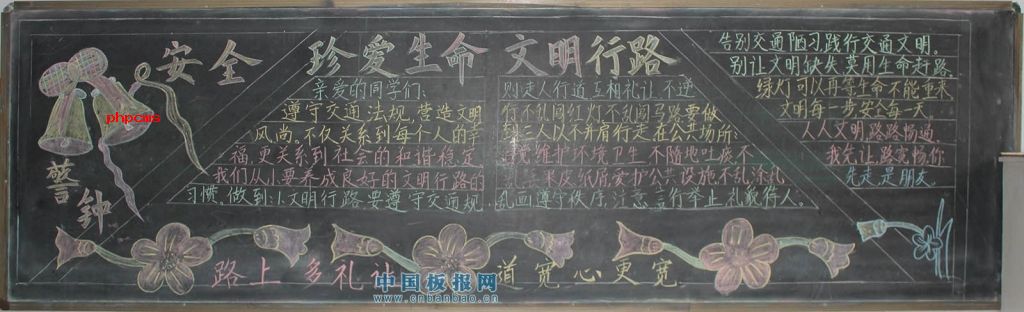 安全警钟
珍爱生命 文明行路
亲爱的同学们:
遵守交通法规,营造文明
风尚。不仅关系到每个人的幸
福,更关系到社会的和谐稳定
我们从小要养成良好的文明行路的
习惯。做到:以文明行路要遵守交通规
则走人行道互相礼让不逆
行不乱闯红灯不乱闯马路要做
到三人以不并肩行走在公共场所:
维护环境卫生不随地吐痰不
果皮纸屑爱护公共设施不乱涂乱
乱画遵守秩序,注意言行举止,礼貌待人。
告别交通陋习,践行交通文明。
别让文明缺失莫用生命赶路
绿灯可以再等生命不能重来
文明每一步安全每一天
人人文明路路畅通
我先让路宽畅你
先走是朋友。
路上多礼让 道宽心更宽
phpcms
中国板报网
www.cnbanbao.cn